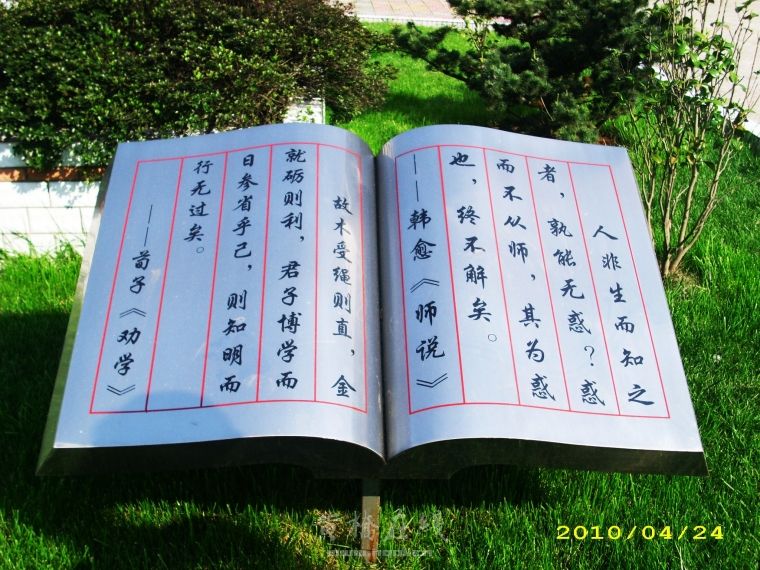 人非生而知之
者，孰能无惑？惑
而不从师，其为惑
也，终不解矣。
——韩愈《师说》
故木受绳则直，金
就砺则利，君子博学而
日参省乎己，则知明而
行无过矣。
——荀子《劝学》
2010/04/24